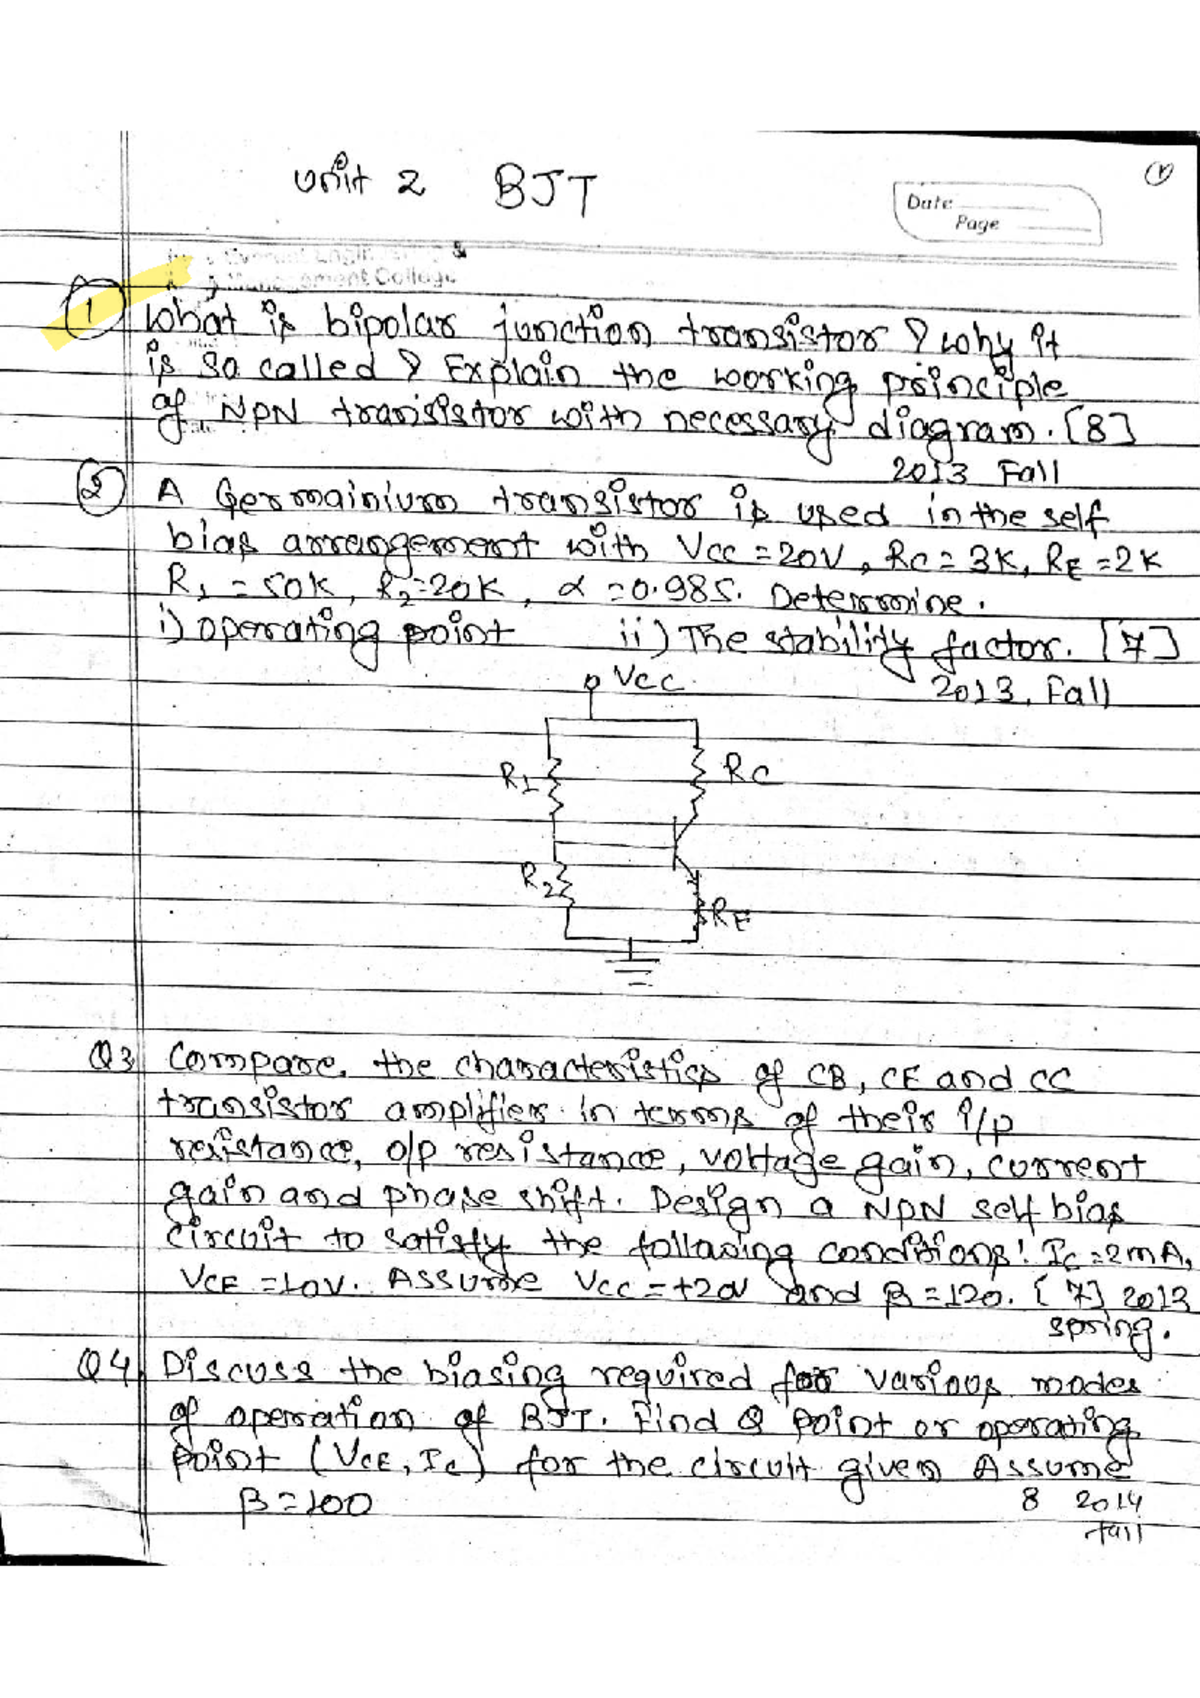 Unit 2 BJT
Date
Page
1 What is bipolar junction transistor ? why it
is so called ? Explain the working principle
of NPN transistor with necessary diagram. [8]
2013 Fall
2 A Germainium transistor is used in the self
bias arrangement with VCC = 20V, RC = 3K, RE = 2K
R1 = 50K, R2 = 20K, α = 0.985. Determine.
i) operating point ii) The stability factor. [7]
2013, Fall
VCC
R1
RC
R2
RE
Q3 Compare the characteristics of CB, CE and CC
transistor amplifier in terms of their i/p
resistance, o/p resistance, voltage gain, current
gain and phase shift. Design a NPN self bias
circuit to satisfy the following conditions: IC = 2mA,
VCE = 10V. Assume VCC = +20V and β = 120. [7] 2013
spring.
Q4 Discuss the biasing required for various modes
of operation of BJT. Find Q point or operating
point (VCE, IC) for the circuit given Assume
β = 100 8 2014
fall